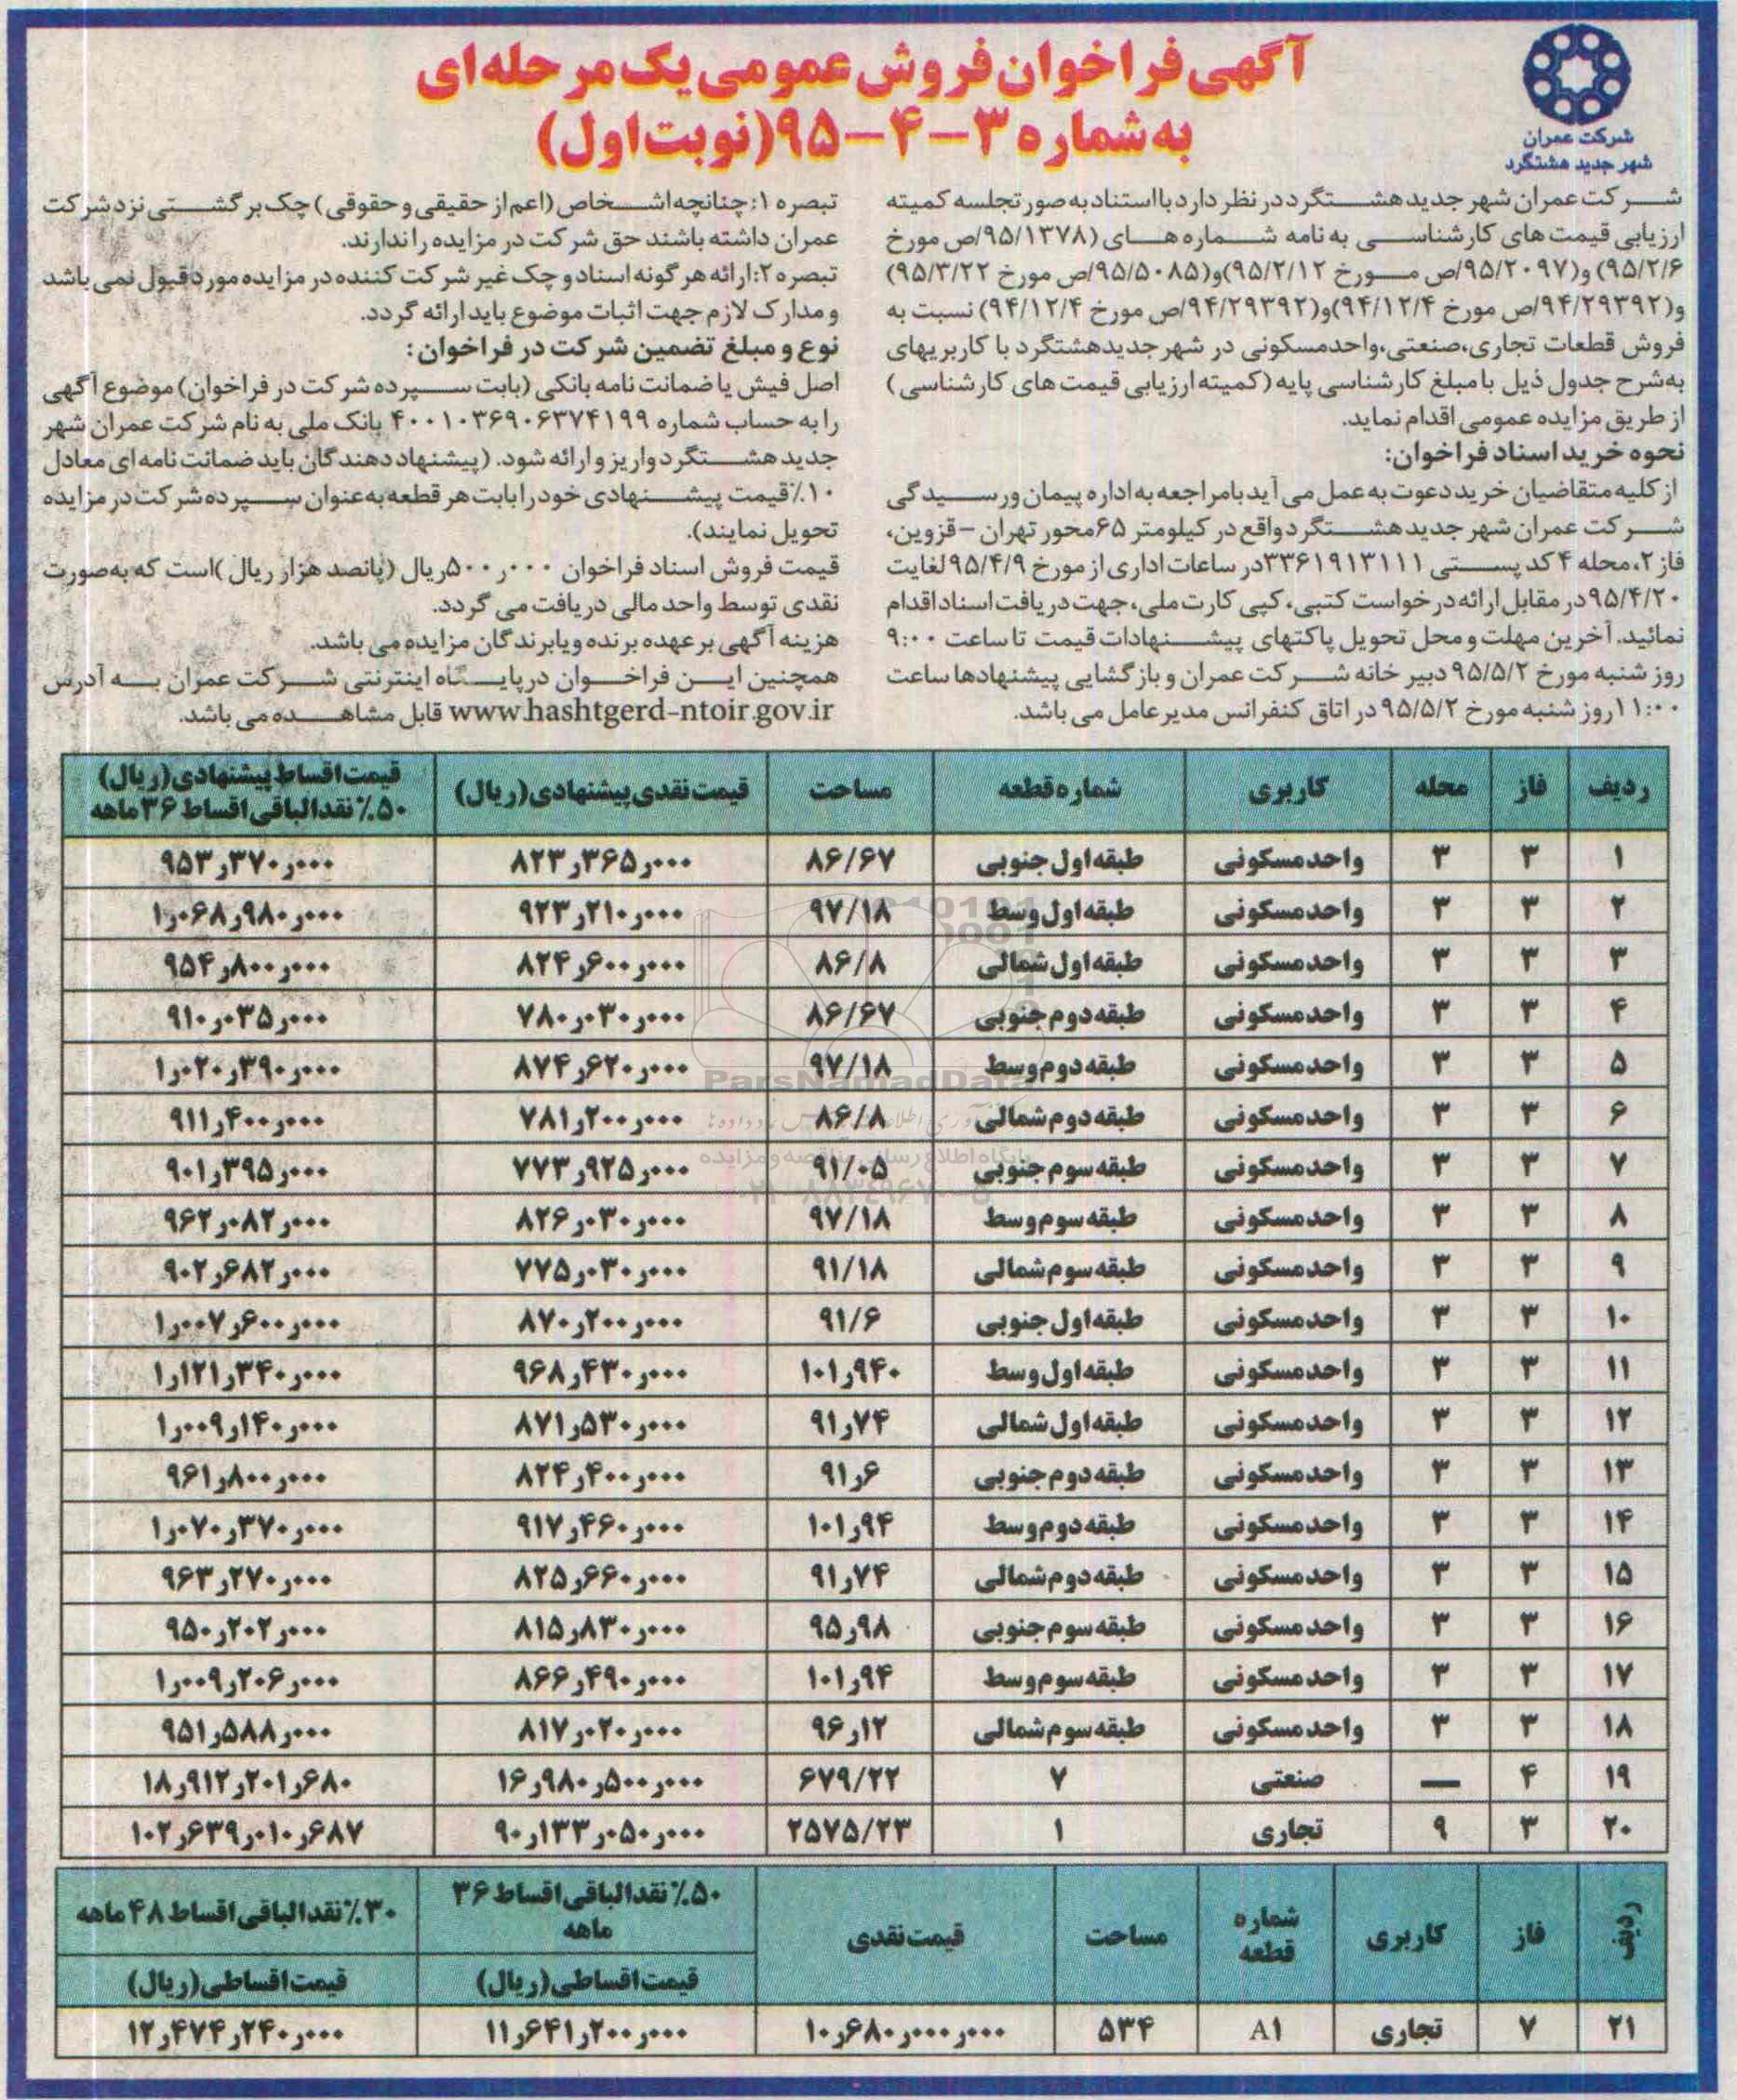 آگهی فراخوان فروش عمومی یک مرحله‌ای
به شماره ۳-۴-۹۵ (نوبت اول)
شرکت عمران
شهر جدید هشتگرد
شرکت عمران شهر جدید هشتگرد در نظر دارد با استناد به صورتجلسه کمیته
ارزیابی قیمت های کارشناسی به نامه شماره های (۹۵/۱۳۷۸/ص مورخ
۹۵/۲/۶) و(۹۵/۲۰۹۷/ص مورخ ۹۵/۲/۱۲)و(۹۵/۵۰۸۵/ص مورخ ۹۵/۳/۲۲)
و(۹۴/۲۹۳۹۲/ص مورخ ۹۴/۱۲/۴)و(۹۴/۲۹۳۹۲/ص مورخ ۹۴/۱۲/۴) نسبت به
فروش قطعات تجاری،صنعتی،واحدمسکونی در شهر جدیدهشتگرد با کاربریهای
به‌شرح جدول ذیل بامبلغ کارشناسی پایه (کمیته ارزیابی قیمت های کارشناسی)
از طریق مزایده عمومی اقدام نماید.
نحوه خرید اسناد فراخوان:
از کلیه متقاضیان خرید دعوت به عمل می آید بامراجعه به اداره پیمان و رسیدگی
شرکت عمران شهر جدید هشتگرد واقع در کیلومتر ۶۵محور تهران -قزوین،
فاز ۲، محله ۴ کد پستی ۳۳۶۱۹۱۳۱۱۱در ساعات اداری از مورخ ۹۵/۴/۹ لغایت
۹۵/۴/۲۰در مقابل ارائه درخواست کتبی، کپی کارت ملی، جهت دریافت اسناد اقدام
نمائید. آخرین مهلت و محل تحویل پاکتهای پیشنهادات قیمت تا ساعت ۹:۰۰
روز شنبه مورخ ۹۵/۵/۲ دبیر خانه شرکت عمران و بازگشایی پیشنهادها ساعت
۱۱:۰۰ روز شنبه مورخ ۹۵/۵/۲ در اتاق کنفرانس مدیرعامل می باشد.
تبصره ۱: چنانچه اشخاص (اعم از حقیقی و حقوقی) چک برگشتی نزد شرکت
عمران داشته باشند حق شرکت در مزایده را ندارند.
تبصره ۲: ارائه هر گونه اسناد و چک غیر شرکت کننده در مزایده مورد قبول نمی باشد
و مدارک لازم جهت اثبات موضوع باید ارائه گردد.
نوع و مبلغ تضمین شرکت در فراخوان:
اصل فیش یا ضمانت نامه بانکی (بابت سپرده شرکت در فراخوان) موضوع آگهی
را به حساب شماره ۴۰۰۱۰۳۶۹۰۶۳۷۴۱۹۹ بانک ملی به نام شرکت عمران شهر
جدید هشتگرد واریز و ارائه شود. (پیشنهاد دهندگان باید ضمانت نامه ای معادل
۱۰٪ قیمت پیشنهادی خود را بابت هر قطعه به عنوان سپرده شرکت در مزایده
تحویل نمایند).
قیمت فروش اسناد فراخوان ۵۰۰ر۰۰۰ریال (پانصد هزار ریال) است که به‌صورت
نقدی توسط واحد مالی دریافت می گردد.
هزینه آگهی بر عهده برنده ویا برندگان مزایده می باشد.
همچنین این فراخوان در پایگاه اینترنتی شرکت عمران به آدرس
www.hashtgerd-ntoir.gov.ir قابل مشاهده می باشد.
ردیف فاز محله کاربری شماره قطعه مساحت قیمت نقدی پیشنهادی (ریال) قیمت اقساط پیشنهادی (ریال) ۵۰٪ نقد الباقی اقساط ۳۶ ماهه
۱ ۳ ۳ واحدمسکونی طبقه اول جنوبی ۸۶/۶۷ ۸۲۳ر۳۶۵ر۰۰۰ ۹۵۳ر۳۷۰ر۰۰۰
۲ ۳ ۳ واحدمسکونی طبقه اول وسط ۹۷/۱۸ ۹۲۳ر۲۱۰ر۰۰۰ ۱ر۰۶۸ر۹۸۰ر۰۰۰
۳ ۳ ۳ واحدمسکونی طبقه اول شمالی ۸۶/۸ ۸۲۴ر۶۰۰ر۰۰۰ ۹۵۴ر۸۰۰ر۰۰۰
۴ ۳ ۳ واحدمسکونی طبقه دوم جنوبی ۸۶/۶۷ ۷۸۰ر۰۳۰ر۰۰۰ ۹۱۰ر۰۳۵ر۰۰۰
۵ ۳ ۳ واحدمسکونی طبقه دوم وسط ۹۷/۱۸ ۸۷۴ر۶۲۰ر۰۰۰ ۱ر۰۲۰ر۳۹۰ر۰۰۰
۶ ۳ ۳ واحدمسکونی طبقه دوم شمالی ۸۶/۸ ۷۸۱ر۲۰۰ر۰۰۰ ۹۱۱ر۴۰۰ر۰۰۰
۷ ۳ ۳ واحدمسکونی طبقه سوم جنوبی ۹۱/۰۵ ۷۷۳ر۹۲۵ر۰۰۰ ۹۰۱ر۳۹۵ر۰۰۰
۸ ۳ ۳ واحدمسکونی طبقه سوم وسط ۹۷/۱۸ ۸۲۶ر۰۳۰ر۰۰۰ ۹۶۲ر۰۸۲ر۰۰۰
۹ ۳ ۳ واحدمسکونی طبقه سوم شمالی ۹۱/۱۸ ۷۷۵ر۰۳۰ر۰۰۰ ۹۰۲ر۶۸۲ر۰۰۰
۱۰ ۳ ۳ واحدمسکونی طبقه اول جنوبی ۹۱/۶ ۸۷۰ر۲۰۰ر۰۰۰ ۱ر۰۰۷ر۶۰۰ر۰۰۰
۱۱ ۳ ۳ واحدمسکونی طبقه اول وسط ۱۰۱ر۹۴۰ ۹۶۸ر۴۳۰ر۰۰۰ ۱ر۱۲۱ر۳۴۰ر۰۰۰
۱۲ ۳ ۳ واحدمسکونی طبقه اول شمالی ۹۱ر۷۴ ۸۷۱ر۵۳۰ر۰۰۰ ۱ر۰۰۹ر۱۴۰ر۰۰۰
۱۳ ۳ ۳ واحدمسکونی طبقه دوم جنوبی ۹۱ر۶ ۸۲۴ر۴۰۰ر۰۰۰ ۹۶۱ر۸۰۰ر۰۰۰
۱۴ ۳ ۳ واحدمسکونی طبقه دوم وسط ۱۰۱ر۹۴ ۹۱۷ر۴۶۰ر۰۰۰ ۱ر۰۷۰ر۳۷۰ر۰۰۰
۱۵ ۳ ۳ واحدمسکونی طبقه دوم شمالی ۹۱ر۷۴ ۸۲۵ر۶۶۰ر۰۰۰ ۹۶۳ر۲۷۰ر۰۰۰
۱۶ ۳ ۳ واحدمسکونی طبقه سوم جنوبی ۹۵ر۹۸ ۸۱۵ر۸۳۰ر۰۰۰ ۹۵۰ر۲۰۲ر۰۰۰
۱۷ ۳ ۳ واحدمسکونی طبقه سوم وسط ۱۰۱ر۹۴ ۸۶۶ر۴۹۰ر۰۰۰ ۱ر۰۰۹ر۲۰۶ر۰۰۰
۱۸ ۳ ۳ واحدمسکونی طبقه سوم شمالی ۹۶ر۱۲ ۸۱۷ر۰۲۰ر۰۰۰ ۹۵۱ر۵۸۸ر۰۰۰
۱۹ ۴ — صنعتی ۷ ۶۷۹/۲۲ ۱۶ر۹۸۰ر۵۰۰ر۰۰۰ ۱۸ر۹۱۲ر۲۰۱ر۶۸۰
۲۰ ۳ ۹ تجاری ۱ ۲۵۷۵/۲۳ ۹۰ر۱۳۳ر۰۵۰ر۰۰۰ ۱۰۲ر۶۳۹ر۰۱۰ر۶۸۷
ردیف فاز کاربری شماره قطعه مساحت قیمت نقدی ۵۰٪ نقد الباقی اقساط ۳۶ ماهه ۳۰٪ نقد الباقی اقساط ۴۸ ماهه
قیمت اقساطی (ریال) قیمت اقساطی (ریال)
۲۱ ۷ تجاری A۱ ۵۳۴ ۱۰ر۶۸۰ر۰۰۰ر۰۰۰ ۱۱ر۶۴۱ر۲۰۰ر۰۰۰ ۱۲ر۴۷۴ر۲۴۰ر۰۰۰
ParsNamadData